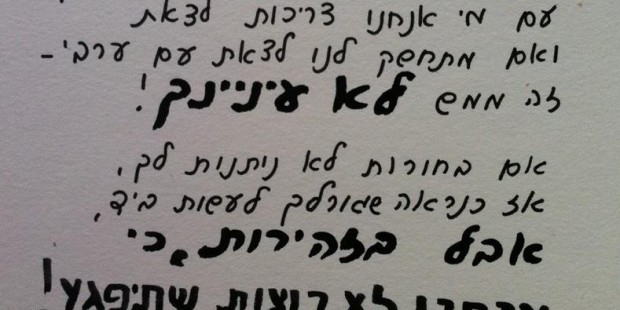 עם מי אנחנו צריכות לצאת
ואם מתחשק לנו לצאת עם ערבי-
זה ממש לא עיניינך!
אם בחורות לא ניתנות לך,
אז כנראה שגורלך לעשות ביד,
אבל בזהירות, כי
אנחנו לא רוצות שתיפגע!